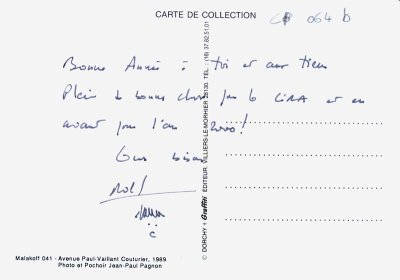 CARTE DE COLLECTION
CP 064 b
Bonne Année à toi et aux tiens
Plein de bonnes choses pour le CIRA et en
avant pour l'an 2000!
Gros bisous
© DORCHY + Graffiti ÉDITEUR. VILLIERS-LE-MORHIER 28130. TÉL. : (16) 37.82.51.01
Malakoff 041 - Avenue Paul-Vaillant Couturier, 1989
Photo et Pochoir Jean-Paul Pagnon